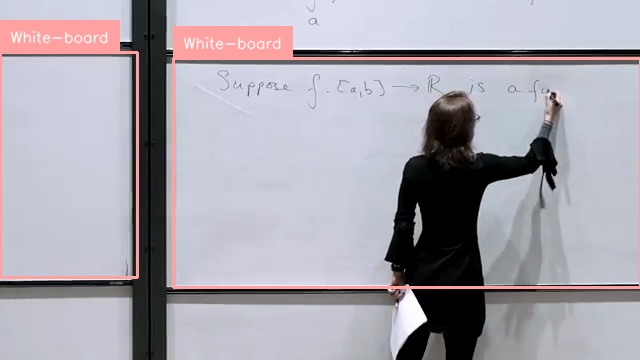 a
White-board
White-board
Suppose f : [a,b] → ℝ is a fu